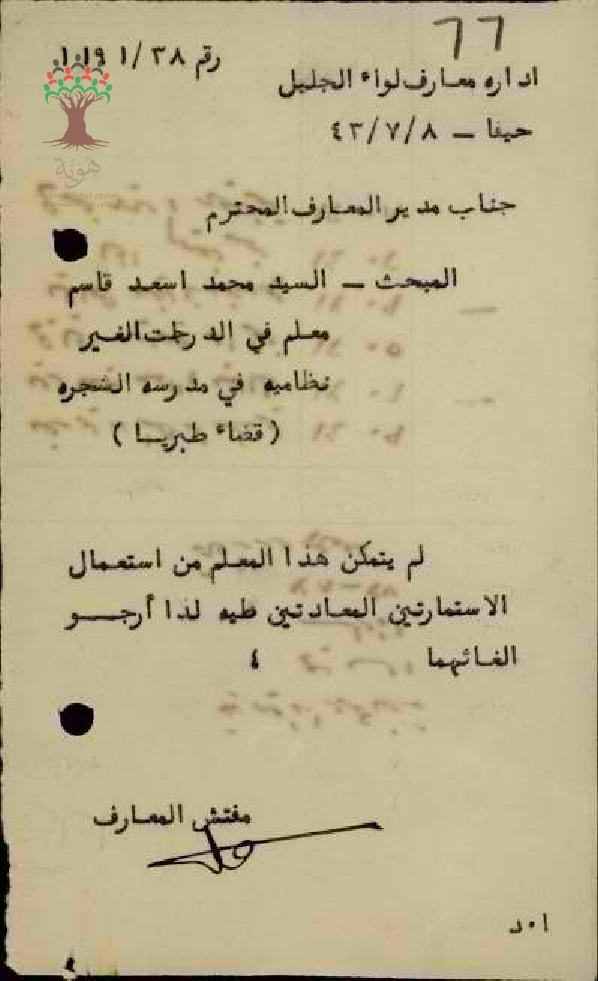 ٦٦
رقم ١٠١٩١/٣٨
اداره معارف لواء الجليل
حيفا - ٤٣/٧/٨
هوية
جناب مدير المعارف المحترم
المبحث - السيد محمد اسعد قاسم
معلم في الدرجات الغير
نظاميه في مدرسه الشجره
(قضاء طبريا)
لم يتمكن هذا المعلم من استعمال
الاستمارتين المعادتين طيه لذا أرجو
الغائهما ٤
مفتش المعارف